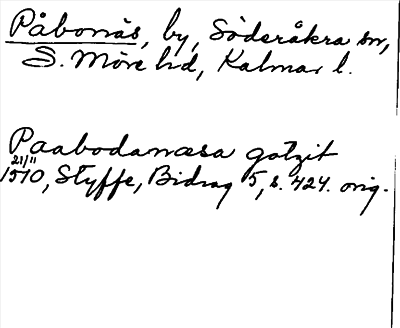 Påbonäs, by, Söderåkra sn,
S. Möre hd, Kalmar l.
Paabodanæsa gotzit
21/11 1510, Styffe, Bidrag 5, s. 424. orig.